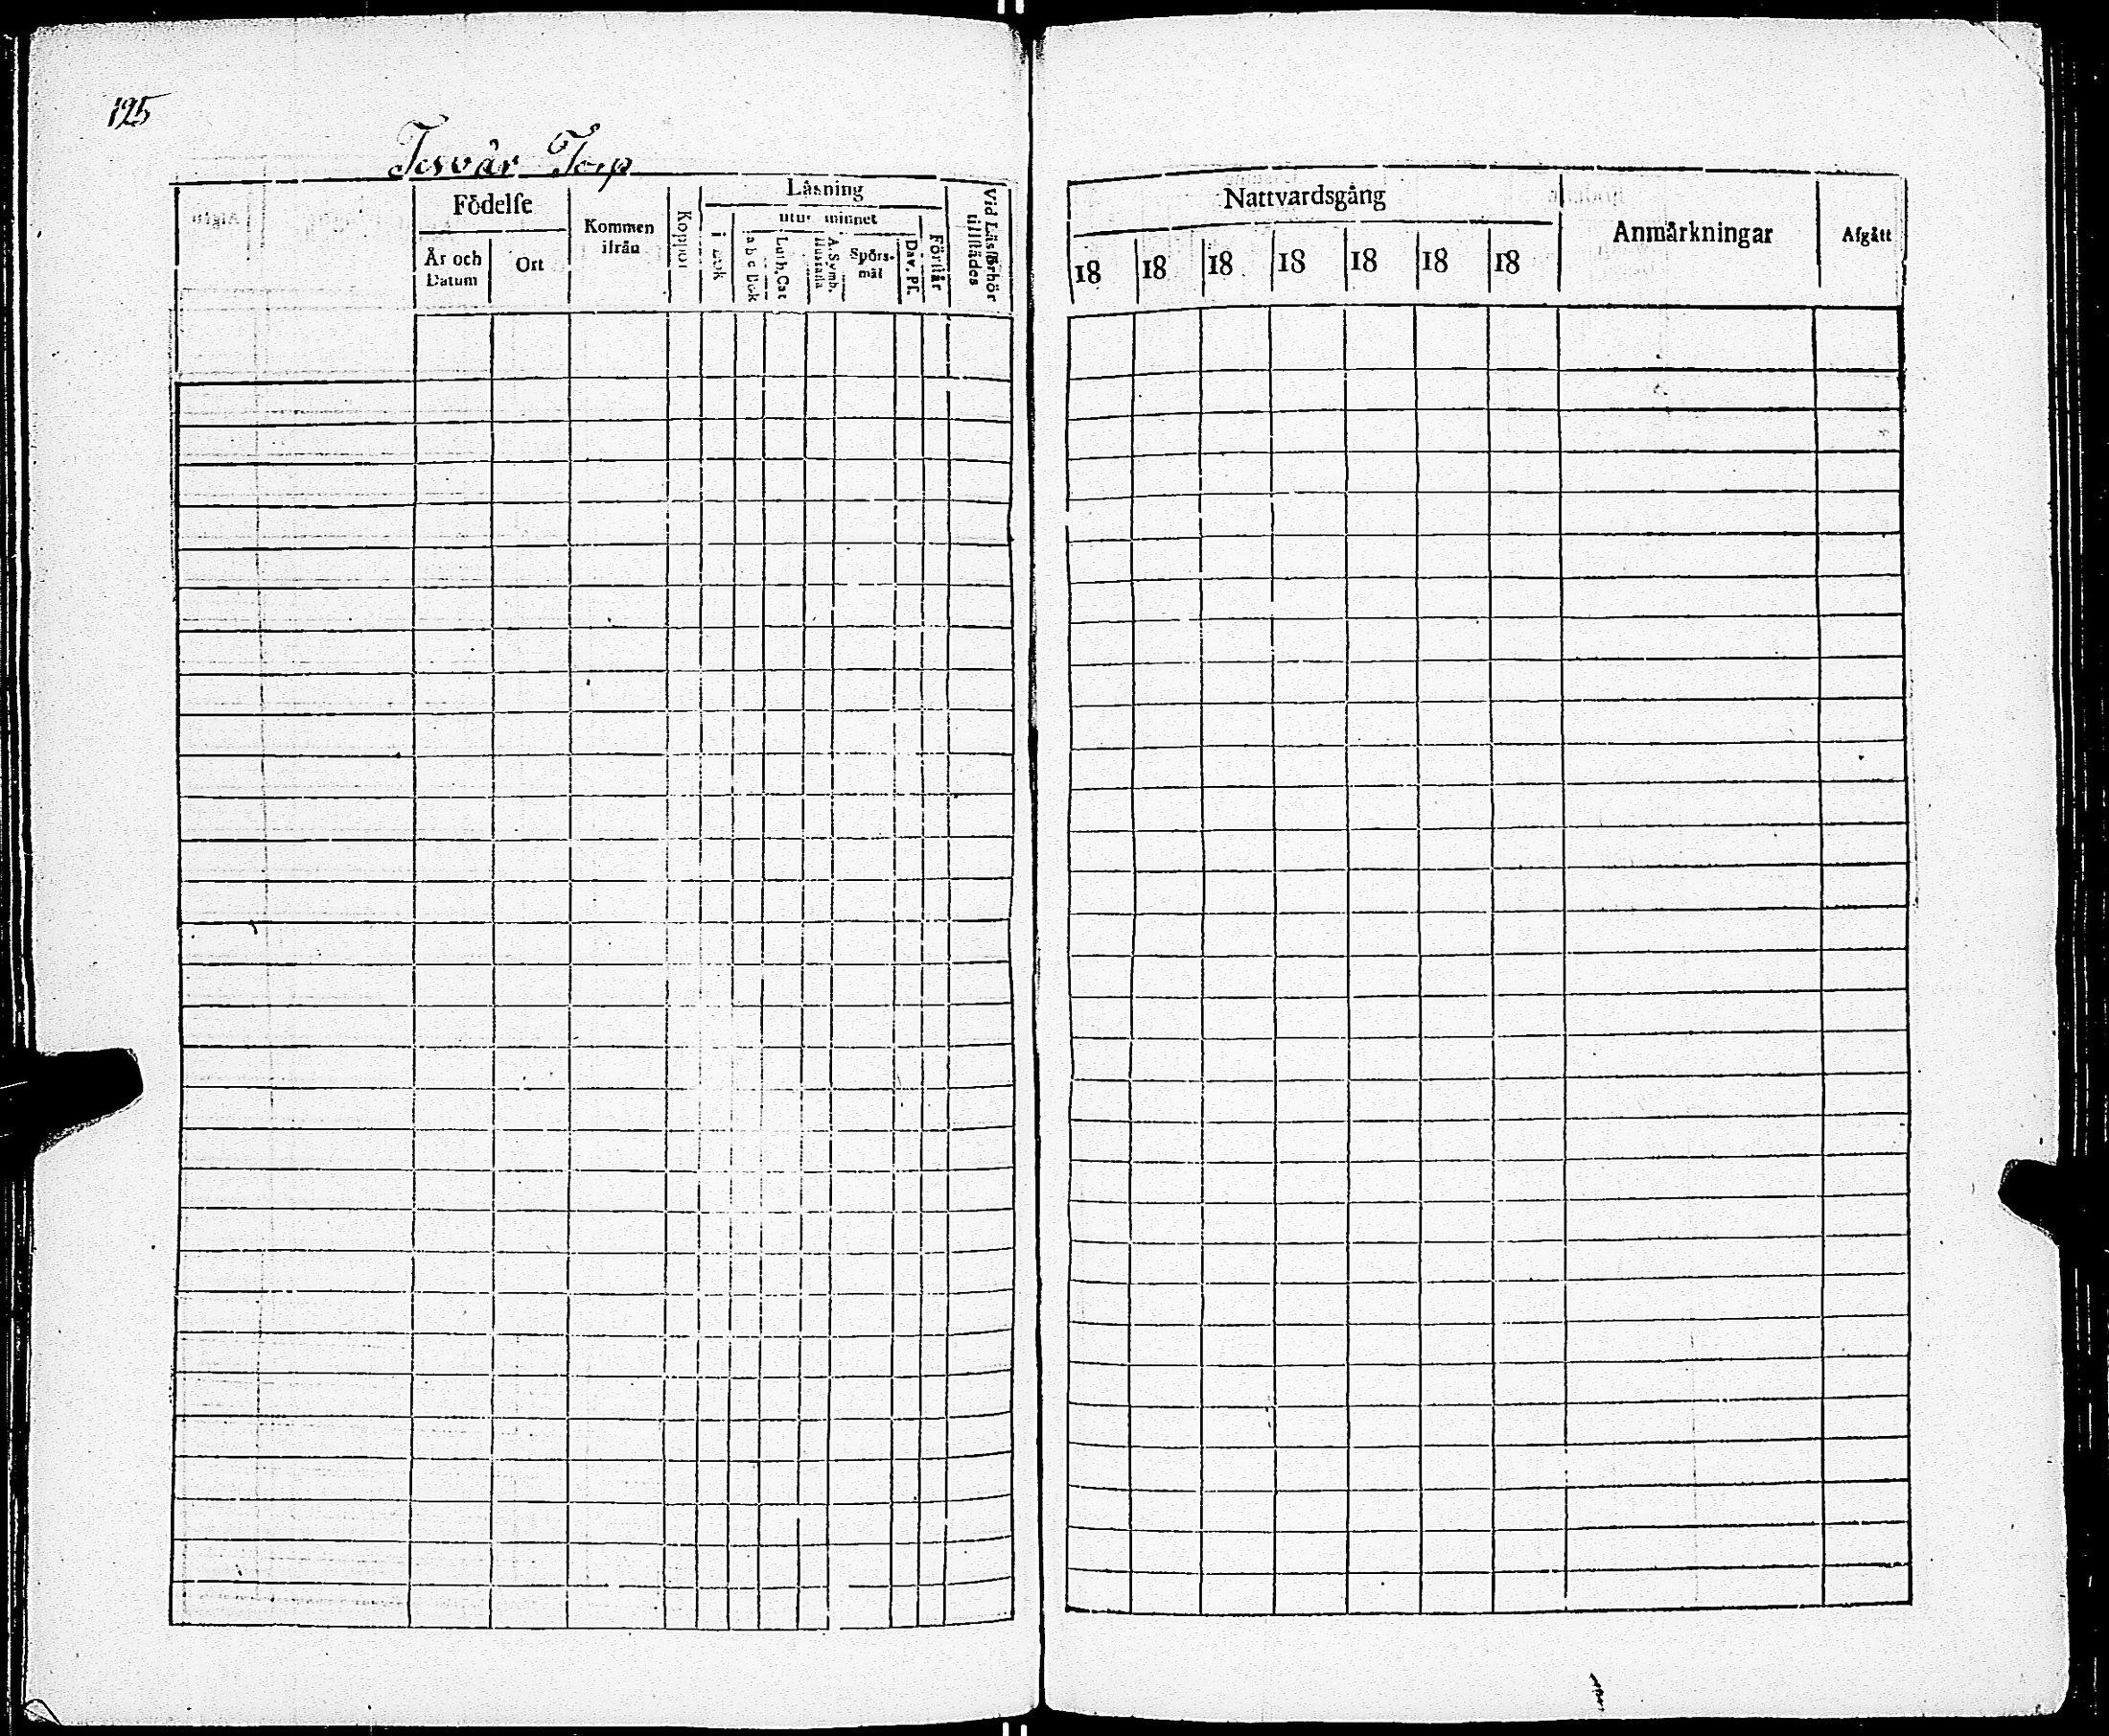 125
Tesvår Torp
Födelse
År och Datum
Ort
Kommen ifrån
Koppor
Läsning
i bok
utur minnet
a b c Bok
Luth. Cat
A. Symb. Hustafla
Spörs-mål
Dav. Pf.
Förstår
Vid Läsförhör tillstädes
Nattvardsgång
18 18 18 18 18 18 18
Anmärkningar
Afgått